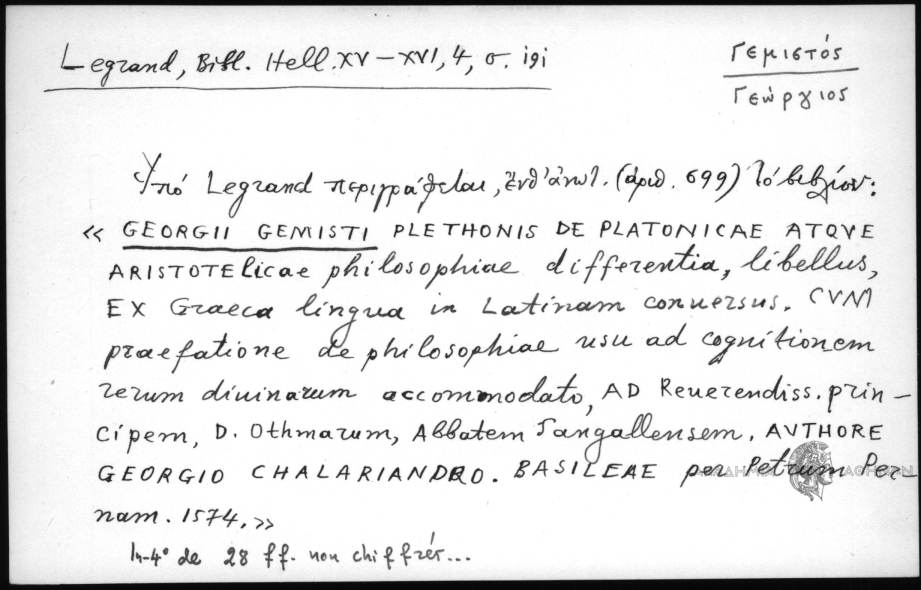 Legrand, Bibl. Hell. XV-XVI, 4, σ. 191
Γεμιστός
Γεώργιος
Ὑπό Legrand περιγράφεται, ἔνθ' ἀνωτ. (ἀριθ. 699) τό βιβλίον:
« GEORGII GEMISTI PLETHONIS DE PLATONICAE ATQVE
ARISTOTElicae philosophiae differentia, libellus,
EX Graeca lingua in Latinam conuersus. CVM
praefatione de philosophiae usu ad cognitionem
rerum diuinarum accommodato, AD Reuerendiss. prin-
cipem, D. Othmarum, Abbatem Sangallensem. AVTHORE
GEORGIO CHALARIANDRO. BASILEAE per Petrum Per-
nam. 1574. »
In-4° de 28 ff. non chiffrés...